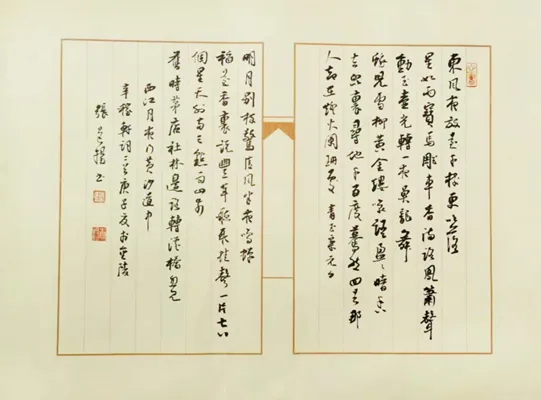 東風夜放花千樹更吹落
星如雨寶馬雕車香滿路鳳簫聲
動玉壺光轉一夜魚龍舞
蛾兒雪柳黃金縷笑語盈々暗香
去眾裏尋他千百度驀然回首那
人卻在燈火闌珊處 青玉案元夕
明月別枝驚清風半夜鳴蟬
稻花香裏說豐年聽取蛙聲一片七八
個星天外兩三點雨山前
舊時茅店社林邊路轉溪橋忽見
西江月夜行黃沙道中
辛稼軒詞二首庚子夏於金陵
張書